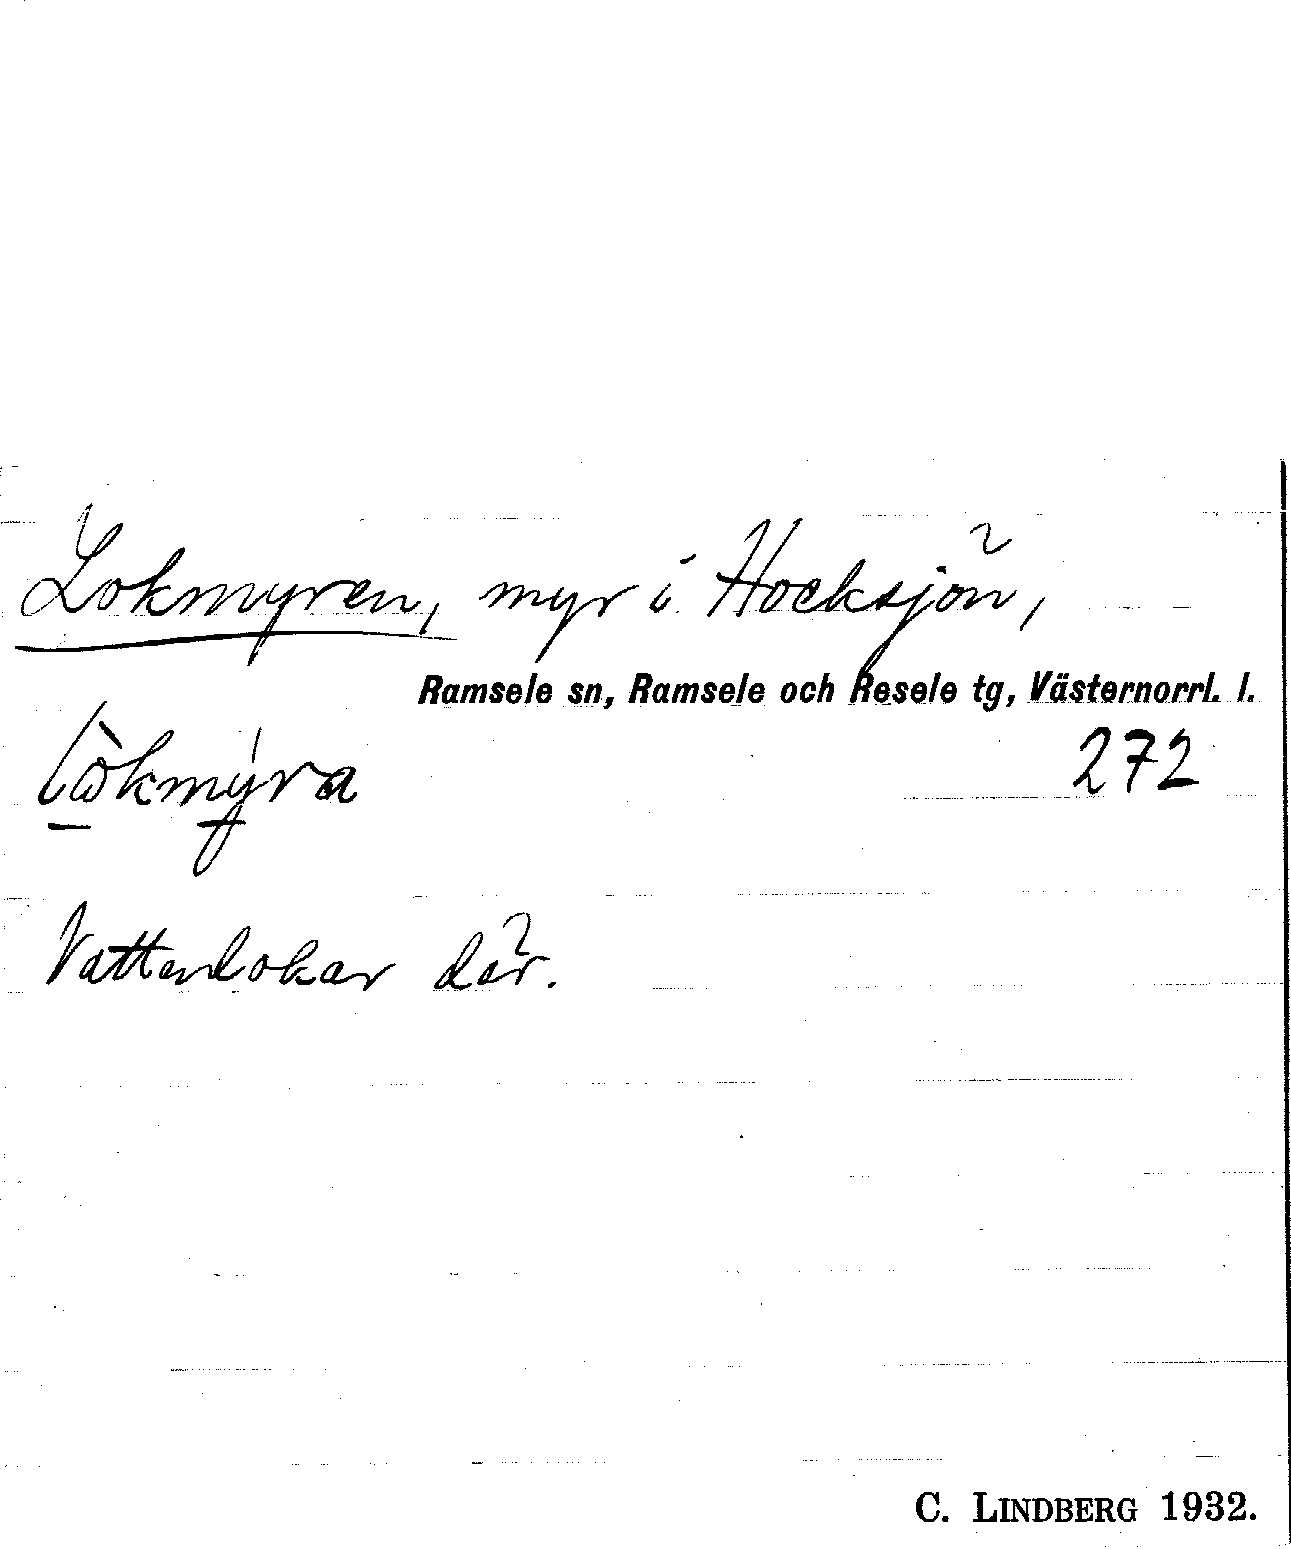 Lokmyren, myr i Hocksjön,
Ramsele sn, Ramsele och Resele tg, Västernorrl. l.
272
Vattenlokar där.
C. LINDBERG 1932.